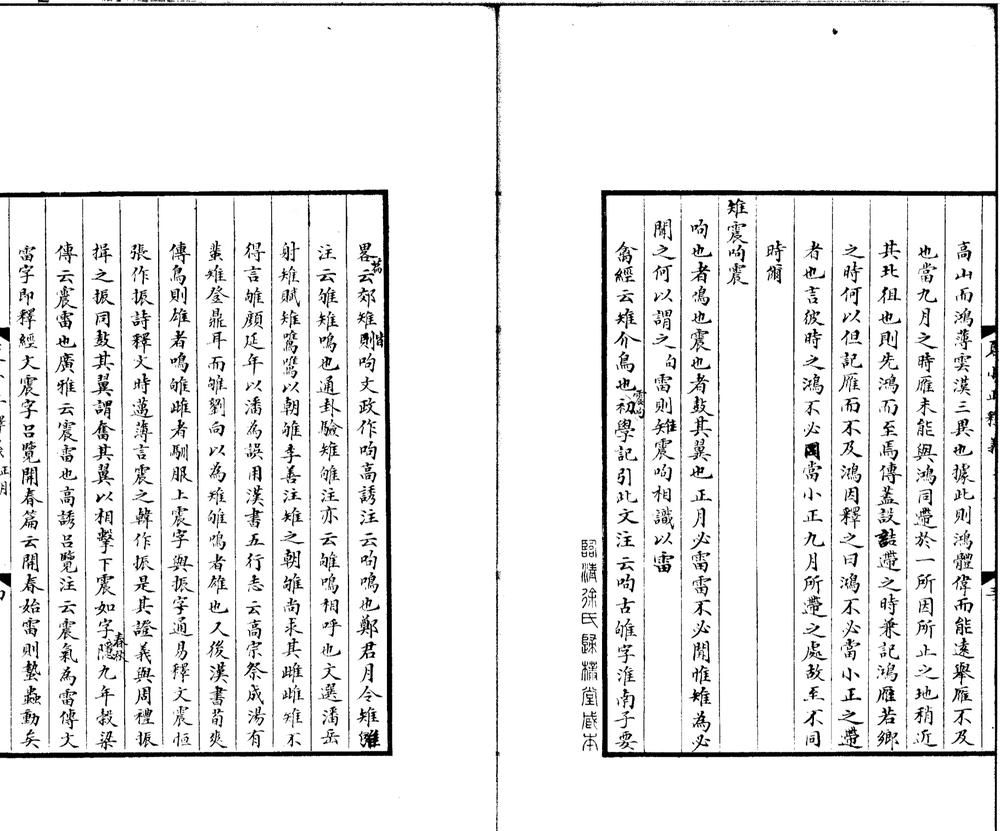 高山而鴻薄雲漢三異也據此則鴻體偉而能遠舉雁不及
也當九月之時雁未能與鴻同遰於一所因所止之地稍近
其北徂也則先鴻而至焉傳蓋設詰遰之時兼記鴻雁若鄉
之時何以但記雁而不及鴻因釋之曰鴻不必當小正之遰
者也言彼時之鴻不必當小正九月所遰之處故至不同
時爾
雉震呴震
呴也者鳴也震也者鼓其翼也正月必雷雷不必聞惟雉為必
聞之何以謂之呴雷則雉震呴相識以雷
禽經云雉介鳥也震呴初學記引此文注云呴古雊字淮南子要
臨清徐氏歸樸堂藏本
畧若云郊雉則皆呴文政作呴高誘注云呴鳴也鄭君月令雉雊
注云雊雉鳴也通卦驗雉雊注亦云雊鳴相呼也文選潘岳
射雉賦雉鷕鷕以朝雊李善注雉之朝雊尚求其雌雌雉不
得言雊顏延年以潘為誤用漢書五行志云高宗祭成湯有
蜚雉登鼎耳而雊劉向以為雉雊鳴者雄也又後漢書荀爽
傳鳥則雄者鳴雊雌者馴服上震字與振字通易釋文震恒
張作振詩釋文時邁薄言震之韓作振是其證義與周禮振
揖之振同鼓其翼謂奮其翼以相擊下震如字春秋隱九年穀梁
傳云震雷也廣雅云震雷也高誘呂覽注云震氣為雷傳文
雷字即釋經文震字呂覽開春篇云開春始雷則蟄蟲動矣